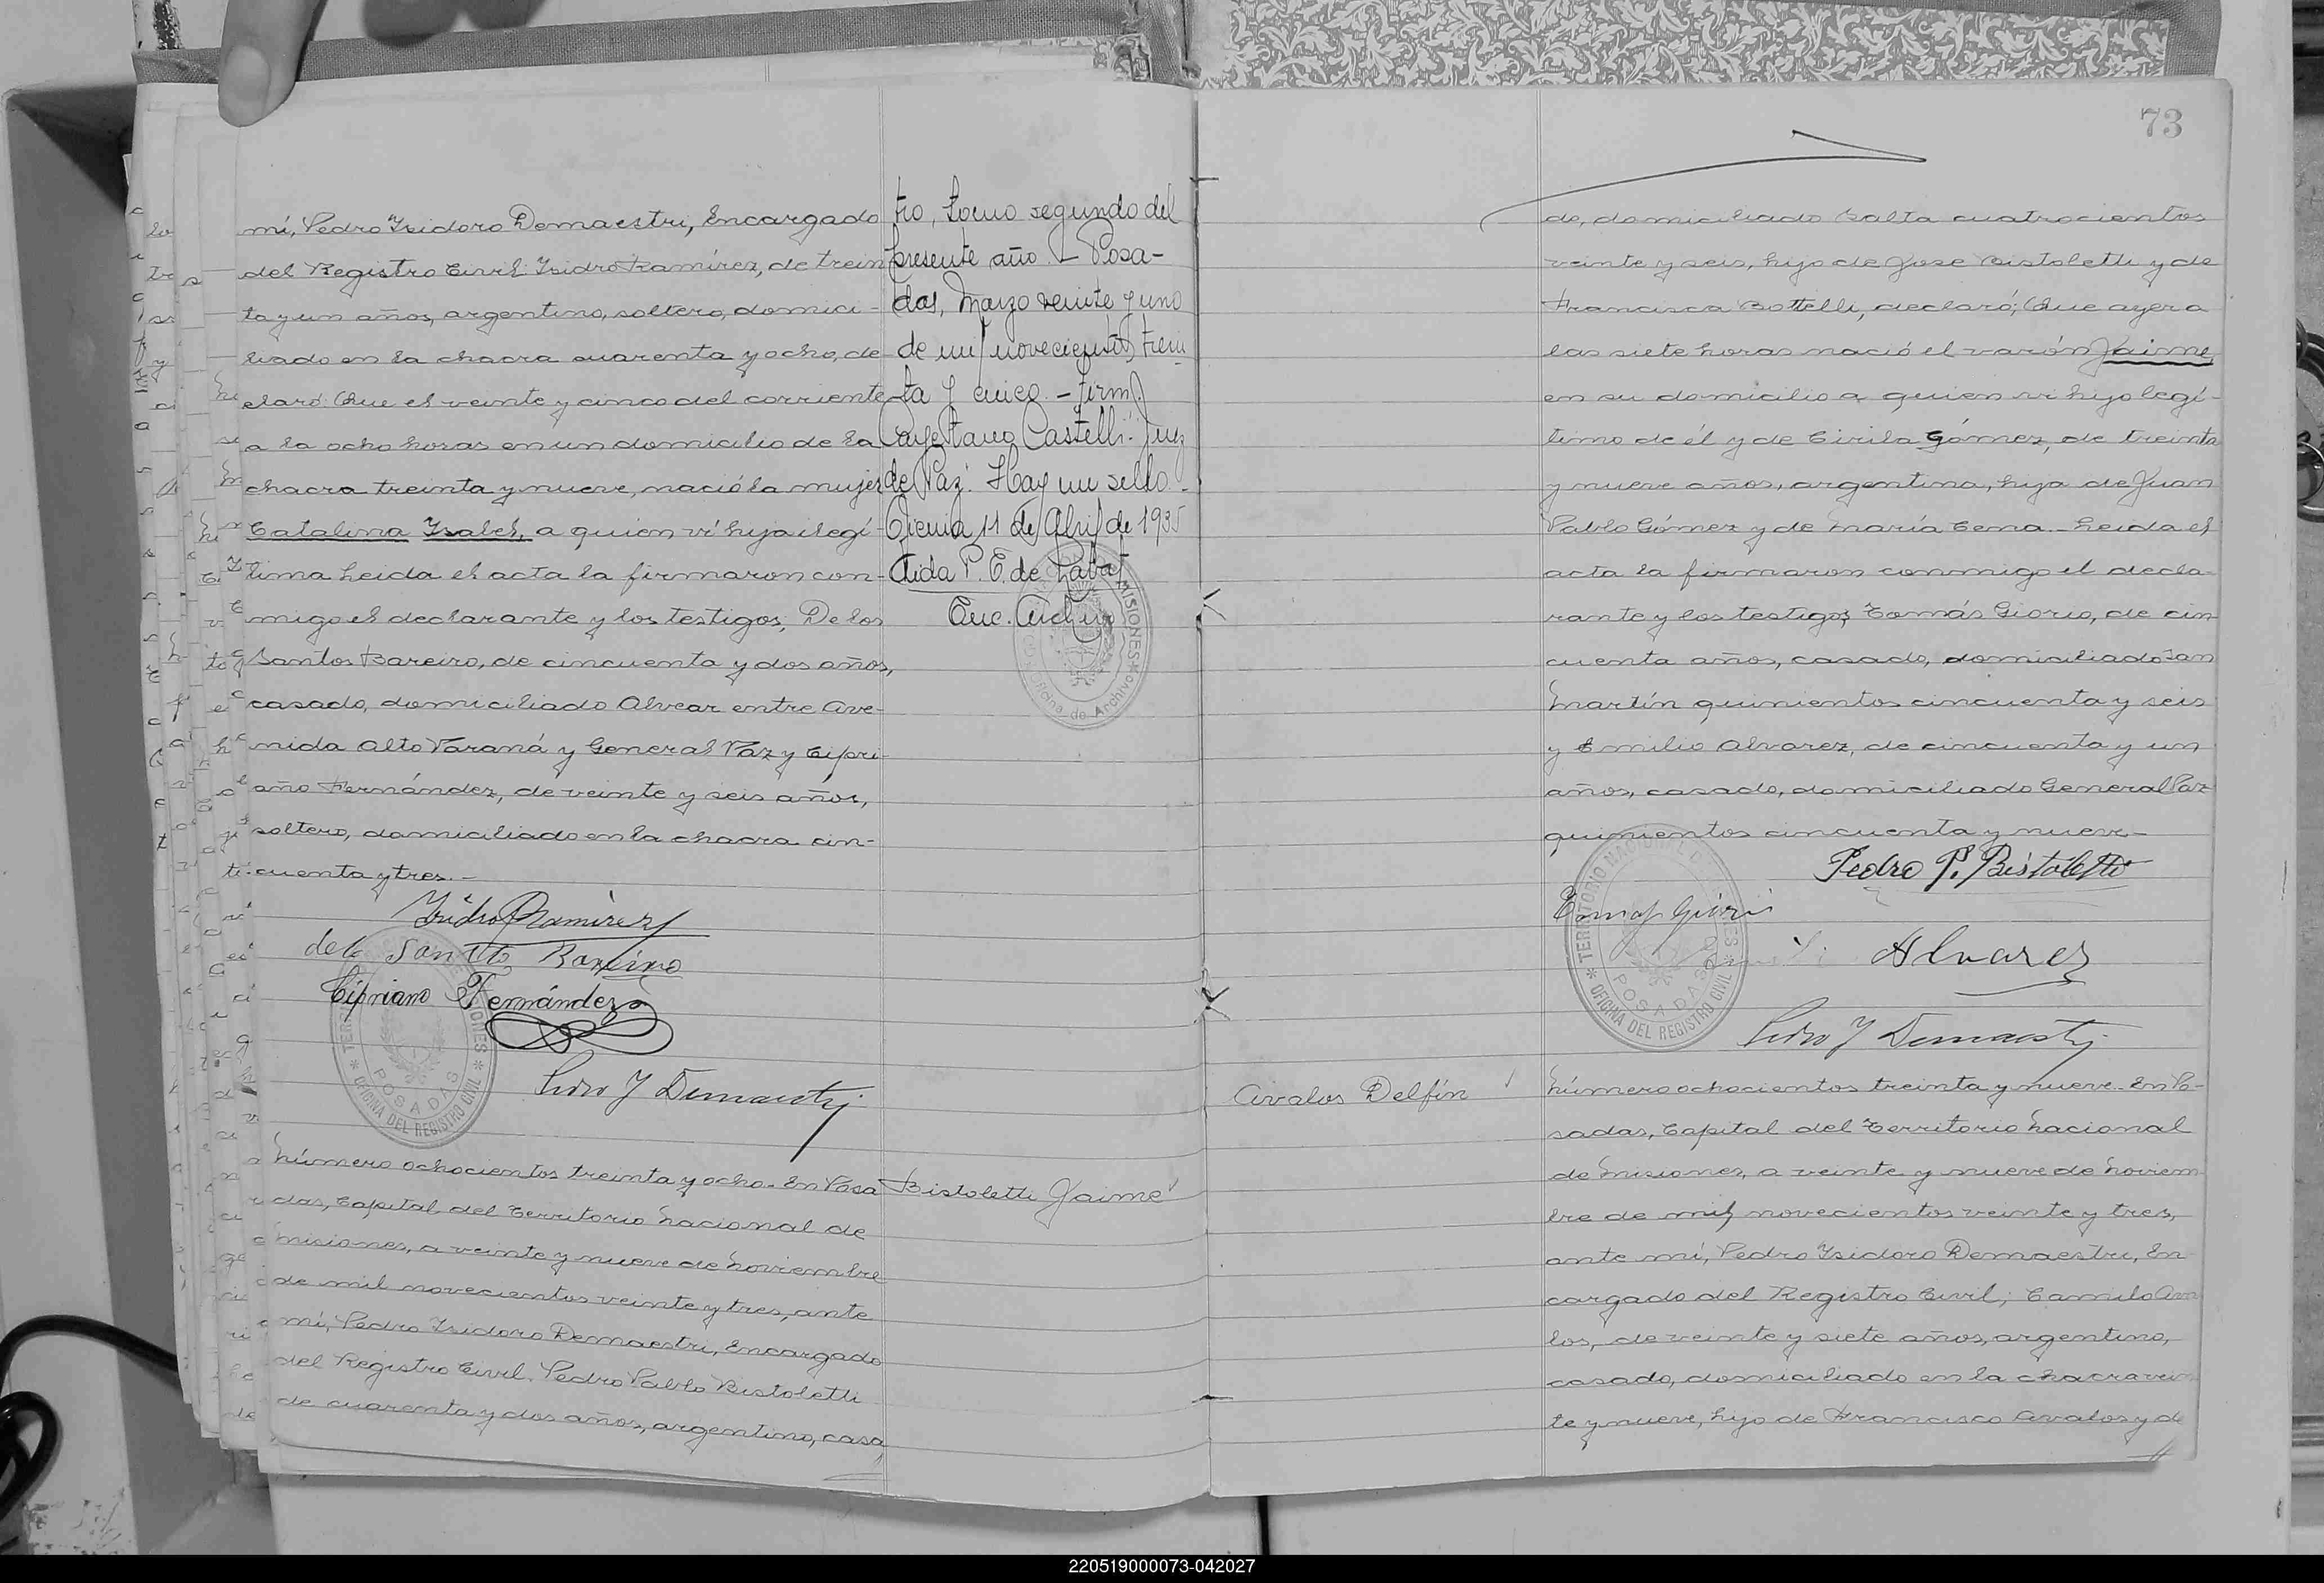 mí, Pedro Isidoro Demaestri, Encargado
del Registro Civil: Isidro Ramírez, de trein
ta y un años, argentino, soltero, domici-
liado en la chacra cuarenta y ocho, de
claró: Que el veinte y cinco del corriente
a la ocho horas en un domicilio de la
chacra treinta y nueve, nació la mujer
Catalina Isabel, a quien ví hija ilegí-
tima. Leida el acta la firmaron con-
migo el declarante y los testigos; De los
Santos Bareiro, de cincuenta y dos años,
casado, domiciliado Alvear entre Ave-
nida Alto Paraná y General Paz y Cipri-
ano Fernández, de veinte y seis años,
soltero, domiciliado en la chacra cin-
cuenta y tres.-
Isidro Ramirez
de lo Santo Bareiro
Cipriano Fernández
Pedro I Demaestri
POSADAS
* OFICINA DEL REGISTRO CIVIL *
Número ochocientos treinta y ocho. En Posa
das, Capital del Territorio Nacional de
Misiones, a veinte y nueve de Noviembre
de mil novecientos veinte y tres, ante
mí, Pedro Isidoro Demaestri, Encargado
del Registro Civil. Pedro Pablo Bistoletti
de cuarenta y dos años, argentino, casa
tro, tomo segundo del
presente año. - Posa-
das, Marzo veinte y uno
de mil novecientos trein
ta y cinco. - Firm.
Cayetano Castelli. Juez
de Paz. Hay un sello.-
Oficina, 11 de Abril de 1935
Aida P. E. de Labat
Enc. Archivo
MISIONES * Oficina de Archivo *
Bistoletti Jaime
73
do, domiciliado Salta cuatrocientos
veinte y seis, hijo de Jose Bistoletti y de
Francisca Bottelli, declaró; Que ayer a
las siete horas nació el varón Jaime,
en su domicilio a quien ví hijo legí-
timo de él y de Cirila Gómez, de treinta
y nueve años, argentina, hija de Juan
Pablo Gómez y de María Cema. Leida el
acta la firmaron conmigo el decla-
rante y los testigos Tomás Giorio, de cin
cuenta años, casado, domiciliado San
Martín quinientos cincuenta y seis
y Emilio Alvarez, de cincuenta y un
años, casado, domiciliado General Paz
quinientos cincuenta y nueve-
Pedro P. Bistoletti
Alvarez
Pedro I Demaestri
* TERRITORIO NACIONAL DE MISIONES *
POSADAS
OFICINA DEL REGISTRO CIVIL
Avalos Delfín
Número ochocientos treinta y nueve. En Po-
sadas, Capital del Territorio Nacional
de Misiones, a veinte y nueve de Noviem
bre de mil novecientos veinte y tres,
ante mí, Pedro Isidoro Demaestri, En
cargado del Registro Civil; Camilo Ava
los, de veinte y siete años, argentino,
casado, domiciliado en la chacra vein
te y nueve, hijo de Francisco Avalos y de
220519000073-042027